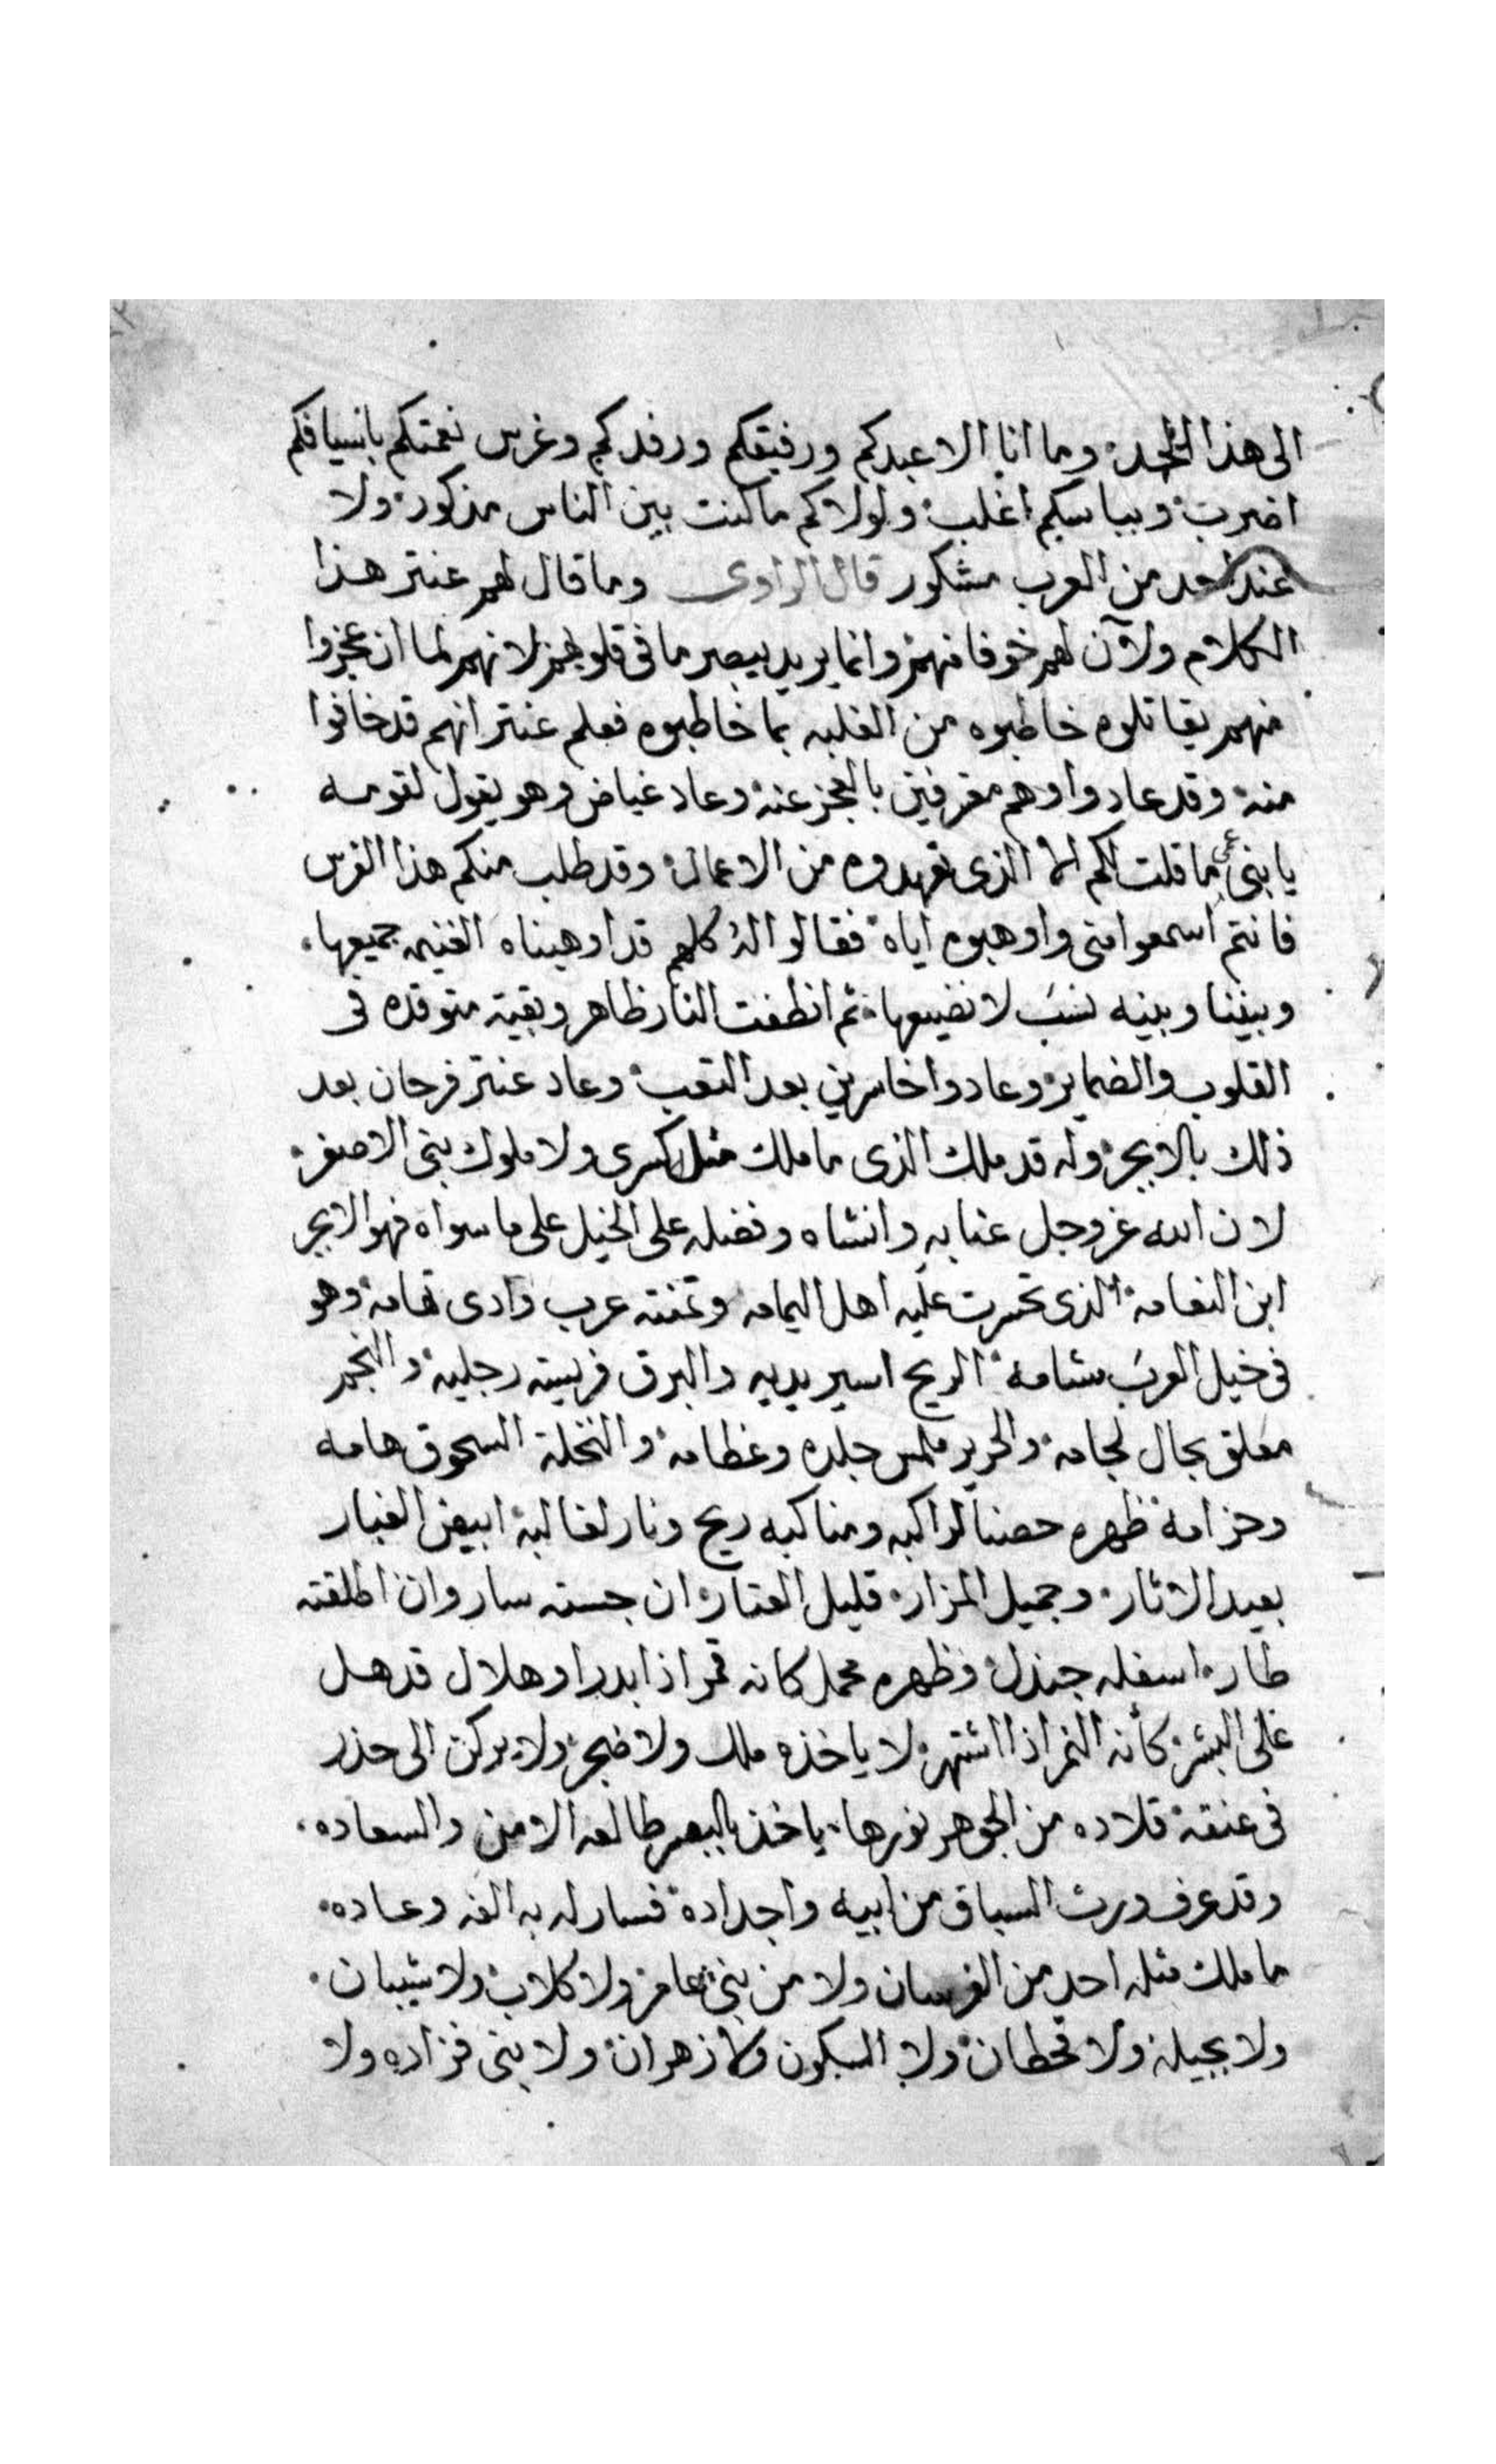 الى هذا الحد وما انا الا عبدكم ورفيقكم ورفدكم وغرس نعمتكم باسيافكم
اضرب وبباسكم اغلب ولولاكم ما كنت بين الناس مذكور ولا
عند احد من العرب مشكور قال الراوى وما قال لهم عنتر هذا
الكلام ولان لهم خوفا منهم وانما يريد يبصر ما فى قلوبهم لانهم لما ان عجزوا
منهم يقاتلوه خاطبوه من الغلبه بما خاطبوه فعلم عنتر انهم قد خافوا
منه وقد عادوا وهم معرفين بالعجز عنه وعاد غياض وهو يقول لقومه
يا بنى عمى ما قلت لكم الا الذى تعهدوه من الاعمال وقد طلب منكم هذا الفرس
فانتم اسمعوا منى واوهبوه اياه فقالوا له كلهم قد اوهبناه الغنيمه جميعها
وبيننا وبينه نسب لا نضيعها ثم انطفت النار ظاهر وبقية متوقده فى
القلوب والضماير وعادوا خاسرين بعد التعب وعاد عنتر فرحان بعد
ذلك بالابجر وله قد ملك الذى ما ملك مثله كسرى ولا ملوك بنى الاصفر
لان الله عز وجل عنا به وانشاه وفضله على الخيل على ما سواه فهو الابجر
ابن النعامه الذى تحسرت عليه اهل اليمامه وتمنته عرب وادى تهامه وهو
فى خيل العرب شامة الريح اسير يديه والبرق فريسته رجليه والنجم
معلق بجال لجامه والحرير ملمس جلده وعظامه والنخلة السحوق هامه
وحزامه ظهره حصنا لراكبه ومناكبه ريح ونار لغالبه ابيض الغبار
بعيد الاثار وجميل المزار قليل العثار ان جسته سار وان اطلقته
طار اسفله جندل وظهره محمل كانه قمر اذا بدر او هلال قد هل
على البشر كأنه النمر اذا اشتهر لا ياخذه ملل ولا ضجر ولا يركن الى حذر
فى عنقه قلاده من الجوهر نورها ياخذ بالبصر طالعه الامن والسعاده
وقد عرف ورث السباق من ابيه واجداده فسار له به الفه وعاده
ما ملك مثله احد من الفرسان ولا من بنى عامر ولا كلاب ولا شيبان
ولا بجيله ولا قحطان ولا السكون ولا زهران ولا بنى فزاره ولا